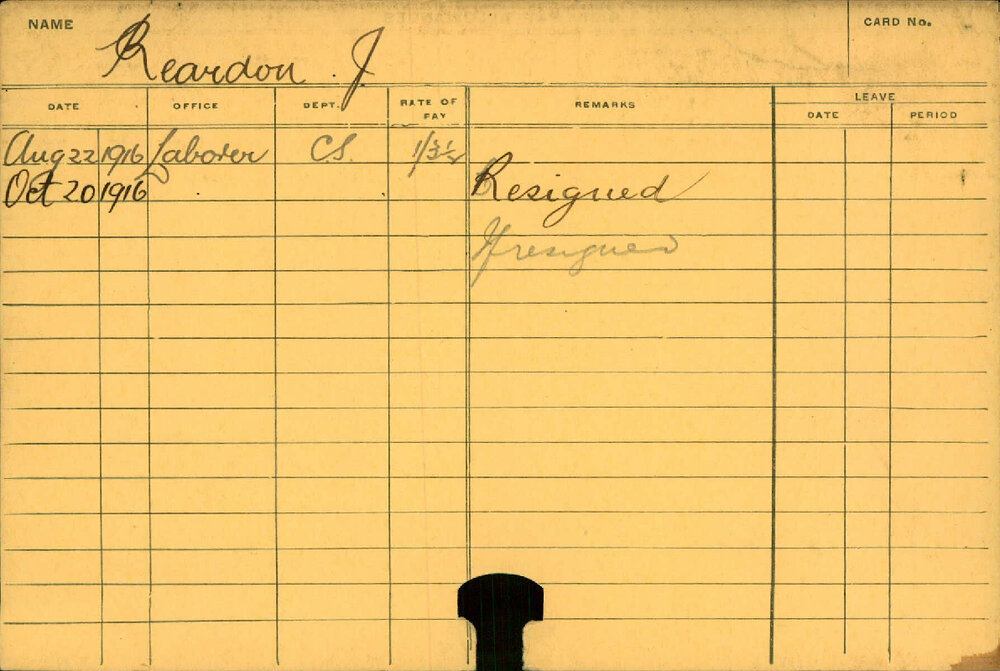 NAME Reardon J. CARD No.
DATE OFFICE DEPT. RATE OF PAY REMARKS LEAVE
DATE PERIOD
Aug 22 1916 Laborer CS.
Oct 20 1916 Resigned
resigned